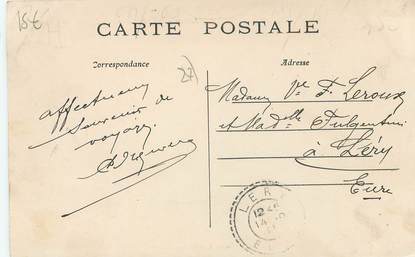 15€
CARTE POSTALE
Correspondance
Adresse
27
affectueux
souvenir de
voyage
Madame Vve F. Leroux
et Mad elle Fulgentini
à Léry
Eure
LERY
12
14